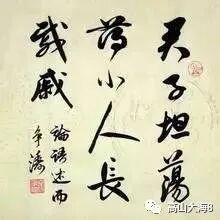 君子坦蕩
蕩小人長
戚戚
論語述而
高山大海8